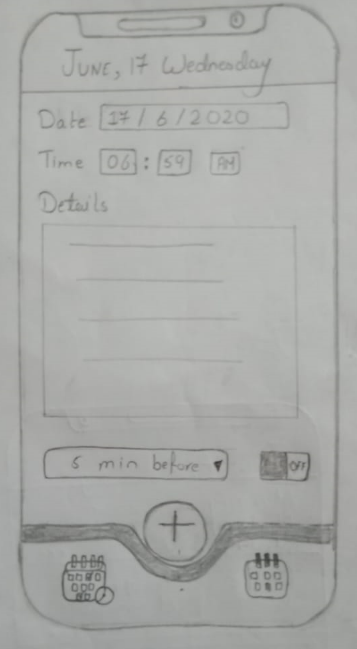 JUNE, 17 Wednesday
Date 17 / 6 / 2020
Time 06 : 59 AM
Details
5 min before OFF
+